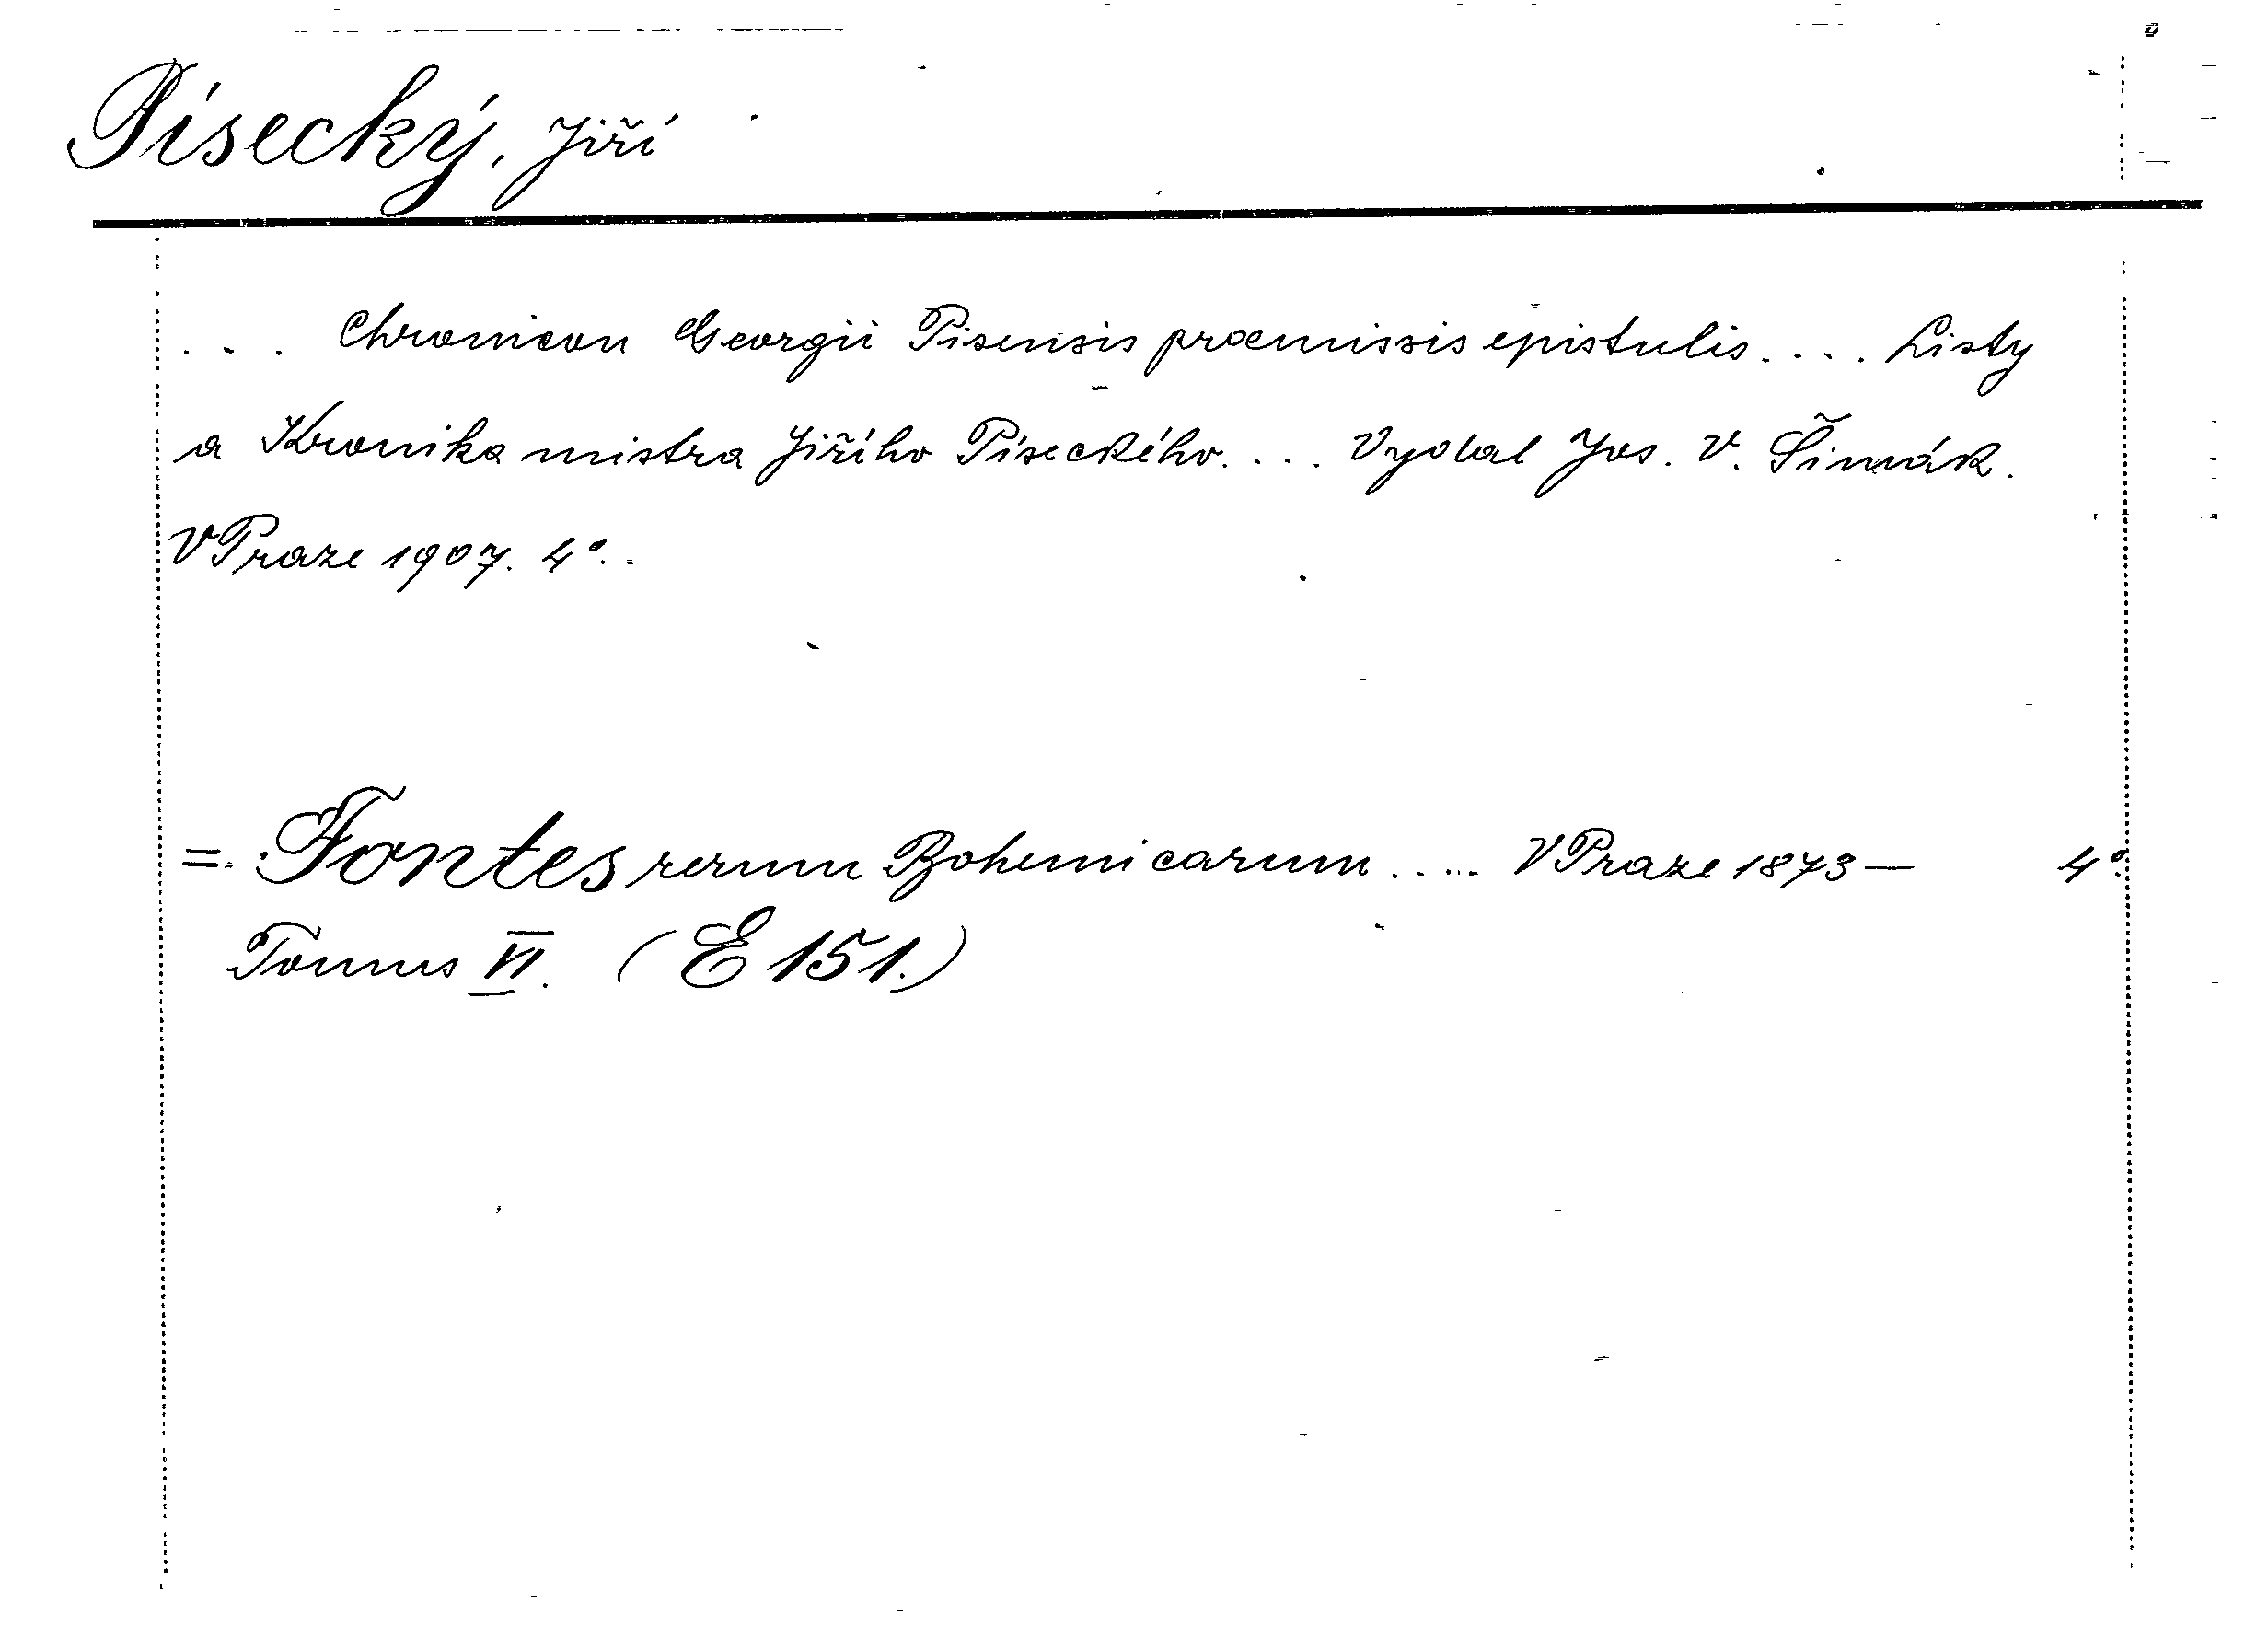 Písecký, Jiří
. . . Chronicon Georgii Pisensis praemissis epistulis. . . . Listy
a Kronika mistra Jiřího Píseckého. . . . Vydal Jos. V. Šimák.
V Praze 1907. 4°.
= Fontes rerum Bohemicarum . . . . V Praze 1873— 4°.
Tomus VI. (E 151.)